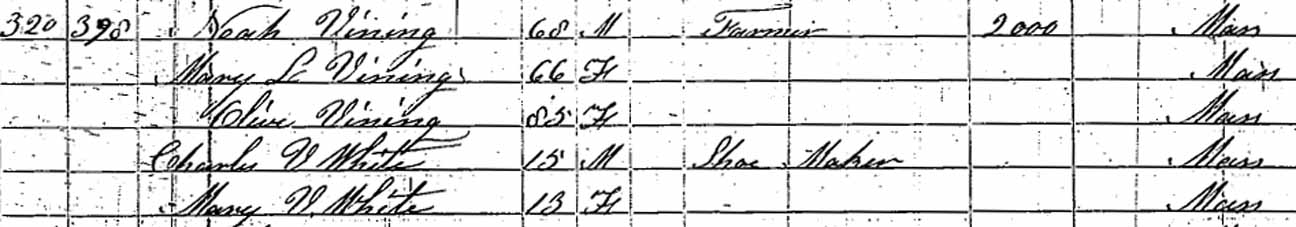 320 398 Noah Vining 68 M Farmer 2000 Mass
Mary L Vining 66 F Mass
Olive Vining 85 F Mass
Charles V White 15 M Shoe Maker Mass
Mary V. White 13 F Mass